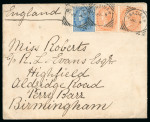 England
Miss Roberts
c/o R. L. Evans Esqre
Highfield
Aldridge Road
Perry Barr
Birmingham